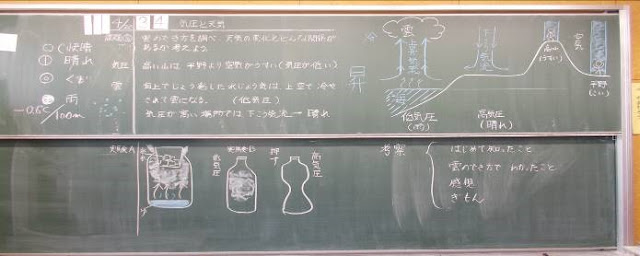 気圧と天気
快晴
晴れ
くもり
雨
-0.6℃/100m
雲のでき方を調べ、天気の変化とどんな関係があるか考えよう。
気圧
高い山は平野より空気がうすい(気圧が低い)
雲
海上でじょう発した水じょう気は、上空で冷やされて雲になる。(低気圧)
気圧が高い場所では下こう気流→晴れ
冷
雲
上昇気流
昇
海
低気圧
(雨)
高気圧
(晴れ)
高山
(うすい)
空気
平野
(こい)
実験A
実験B
低気圧
押す
高気圧
考察
はじめて知ったこと
雲のでき方でわかったこと
感想
ぎもん